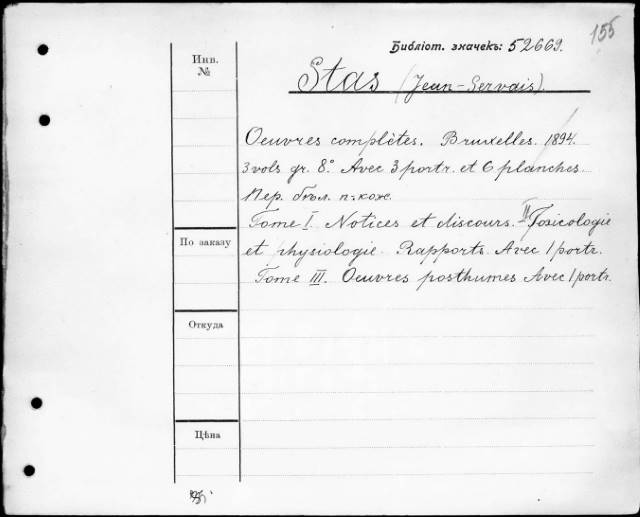 155
Библіот. значекъ: 52669.
Инв. №
Stas (Jean-Servais).
Oeuvres complètes. Bruxelles. 1894.
3 vols gr. 8°. Avec 3 portr. et 6 planches.
Пер. бѣл. п-кож.
Tome I. Notices et discours. II Toxicologie
et physiologie. Rapports. Avec 1 portr.
Tome III. Oeuvres posthumes Avec 1 portr.
По заказу
Откуда
Цѣна